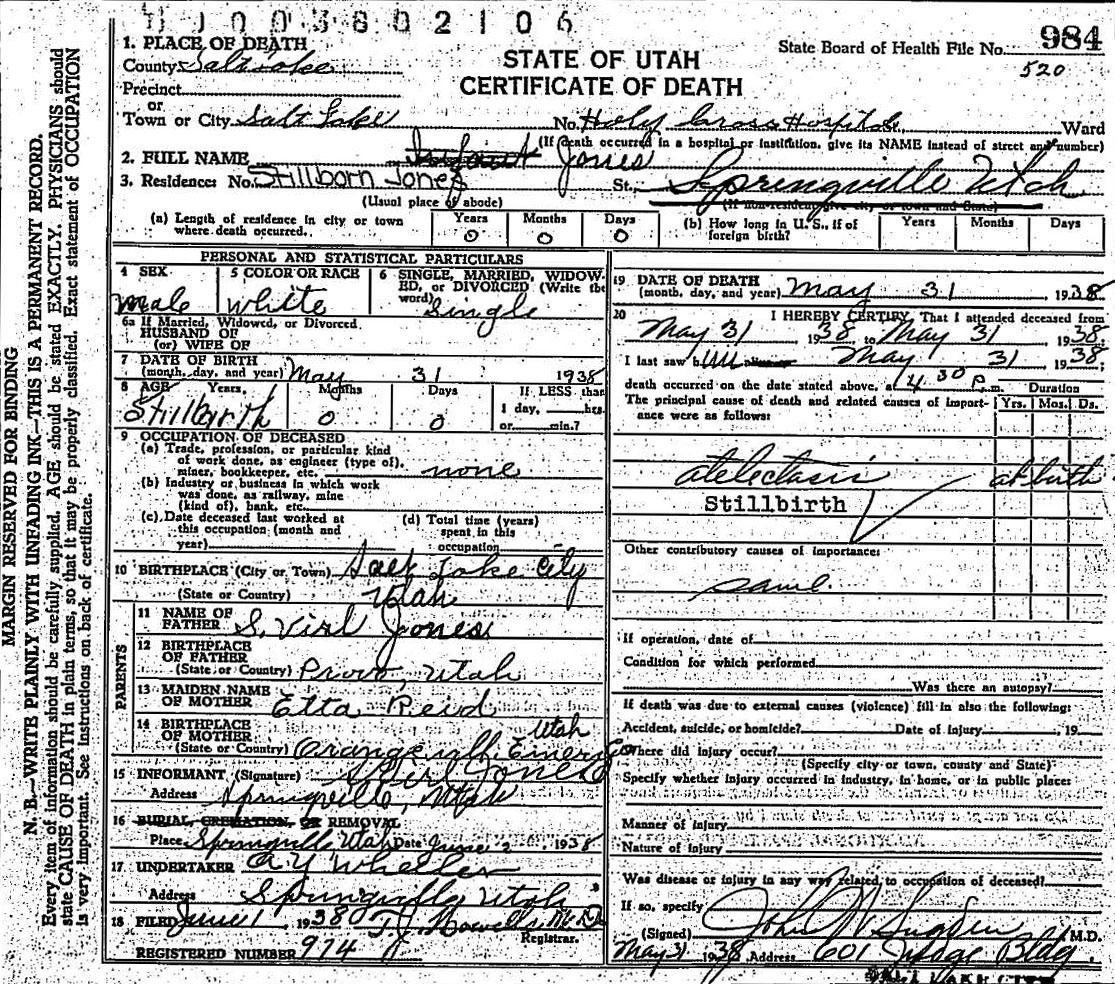 N J 0 0 3 8 0 2 1 0 6
State Board of Health File No. 984
520
STATE OF UTAH
CERTIFICATE OF DEATH
1. PLACE OF DEATH
County Salt Lake
Precinct
or
Town or City Salt Lake No. Holy Cross Hospital Ward
(If death occurred in a hospital or institution, give its NAME instead of street and number)
2. FULL NAME Infant Jones
3. Residence: No. Stillborn Jones St., Springville Utah
(Usual place of abode) (If non-resident give city or town and State)
(a) Length of residence in city or town where death occurred. Years 0 Months 0 Days 0
(b) How long in U. S., if of foreign birth? Years Months Days
PERSONAL AND STATISTICAL PARTICULARS
4 SEX male
5 COLOR OR RACE white
6 SINGLE, MARRIED, WIDOWED, or DIVORCED (Write the word) Single
6a If Married, Widowed, or Divorced
HUSBAND OF
(or) WIFE OF
7 DATE OF BIRTH
(month, day, and year) May 31 1938
8 AGE Years Months Days If LESS than
Stillbirth 0 0 1 day, hrs.
or min.?
9 OCCUPATION OF DECEASED
(a) Trade, profession, or particular kind
of work done, as engineer (type of),
miner, bookkeeper, etc. none
(b) Industry or business in which work
was done, as railway, mine
(kind of), bank, etc.
(c) Date deceased last worked at
this occupation (month and
year)
(d) Total time (years)
spent in this
occupation
10 BIRTHPLACE (City or Town) Salt Lake City
(State or Country) Utah
PARENTS
11 NAME OF
FATHER S. Virl Jones
12 BIRTHPLACE
OF FATHER
(State or Country) Provo, Utah
13 MAIDEN NAME
OF MOTHER Etta Reid
14 BIRTHPLACE
OF MOTHER Utah
(State or Country) Orangeville Emery Co
15 INFORMANT (Signature) S Virl Jones
Address Springville, Utah
16 BURIAL, CREMATION, OR REMOVAL
Place Springville Utah Date June 2 1938
17 UNDERTAKER A Y Wheeler
Address Springville Utah
18 FILED June 1 1938 T. J. Howells M.D.
Registrar.
REGISTERED NUMBER 974
19 DATE OF DEATH
(month, day, and year) May 31 1938
20 I HEREBY CERTIFY, That I attended deceased from
May 31 1938 to May 31 1938.
I last saw him May 31 1938;
death occurred on the date stated above, at 4 30 P.m.
The principal cause of death and related causes of importance were as follows:
Duration
Yrs. Mos. Ds.
atelectasis at birth
Stillbirth
Other contributory causes of importance:
same.
If operation, date of
Condition for which performed
Was there an autopsy?
If death was due to external causes (violence) fill in also the following:
Accident, suicide, or homicide? Date of injury , 19
Where did injury occur?
(Specify city or town, county and State)
Specify whether injury occurred in industry, in home, or in public place:
Manner of injury
Nature of injury
Was disease or injury in any way related to occupation of deceased?
If so, specify
(Signed) John W Sugden M.D.
May 31 1938 Address 601 Judge Bldg.
SALT LAKE CITY
MARGIN RESERVED FOR BINDING
N. B.—WRITE PLAINLY WITH UNFADING INK—THIS IS A PERMANENT RECORD.
Every item of information should be carefully supplied. AGE should be stated EXACTLY. PHYSICIANS should
state CAUSE OF DEATH in plain terms, so that it may be properly classified. Exact statement of OCCUPATION
is very important. See instructions on back of certificate.